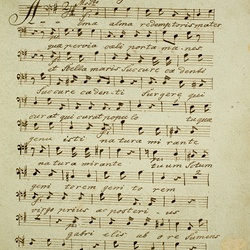 Alma alma redemptoris mater
quae pervia caeli porta manes
et Stella maris Succure cadenti
Succure cadenti Surgere qui
curat qui curat populo tu quae
genuisti natura mirante
natura mirante tuum Sotum
genitorem genitorem
virgo prius ac posterius
gabrielis ab ore Sumens